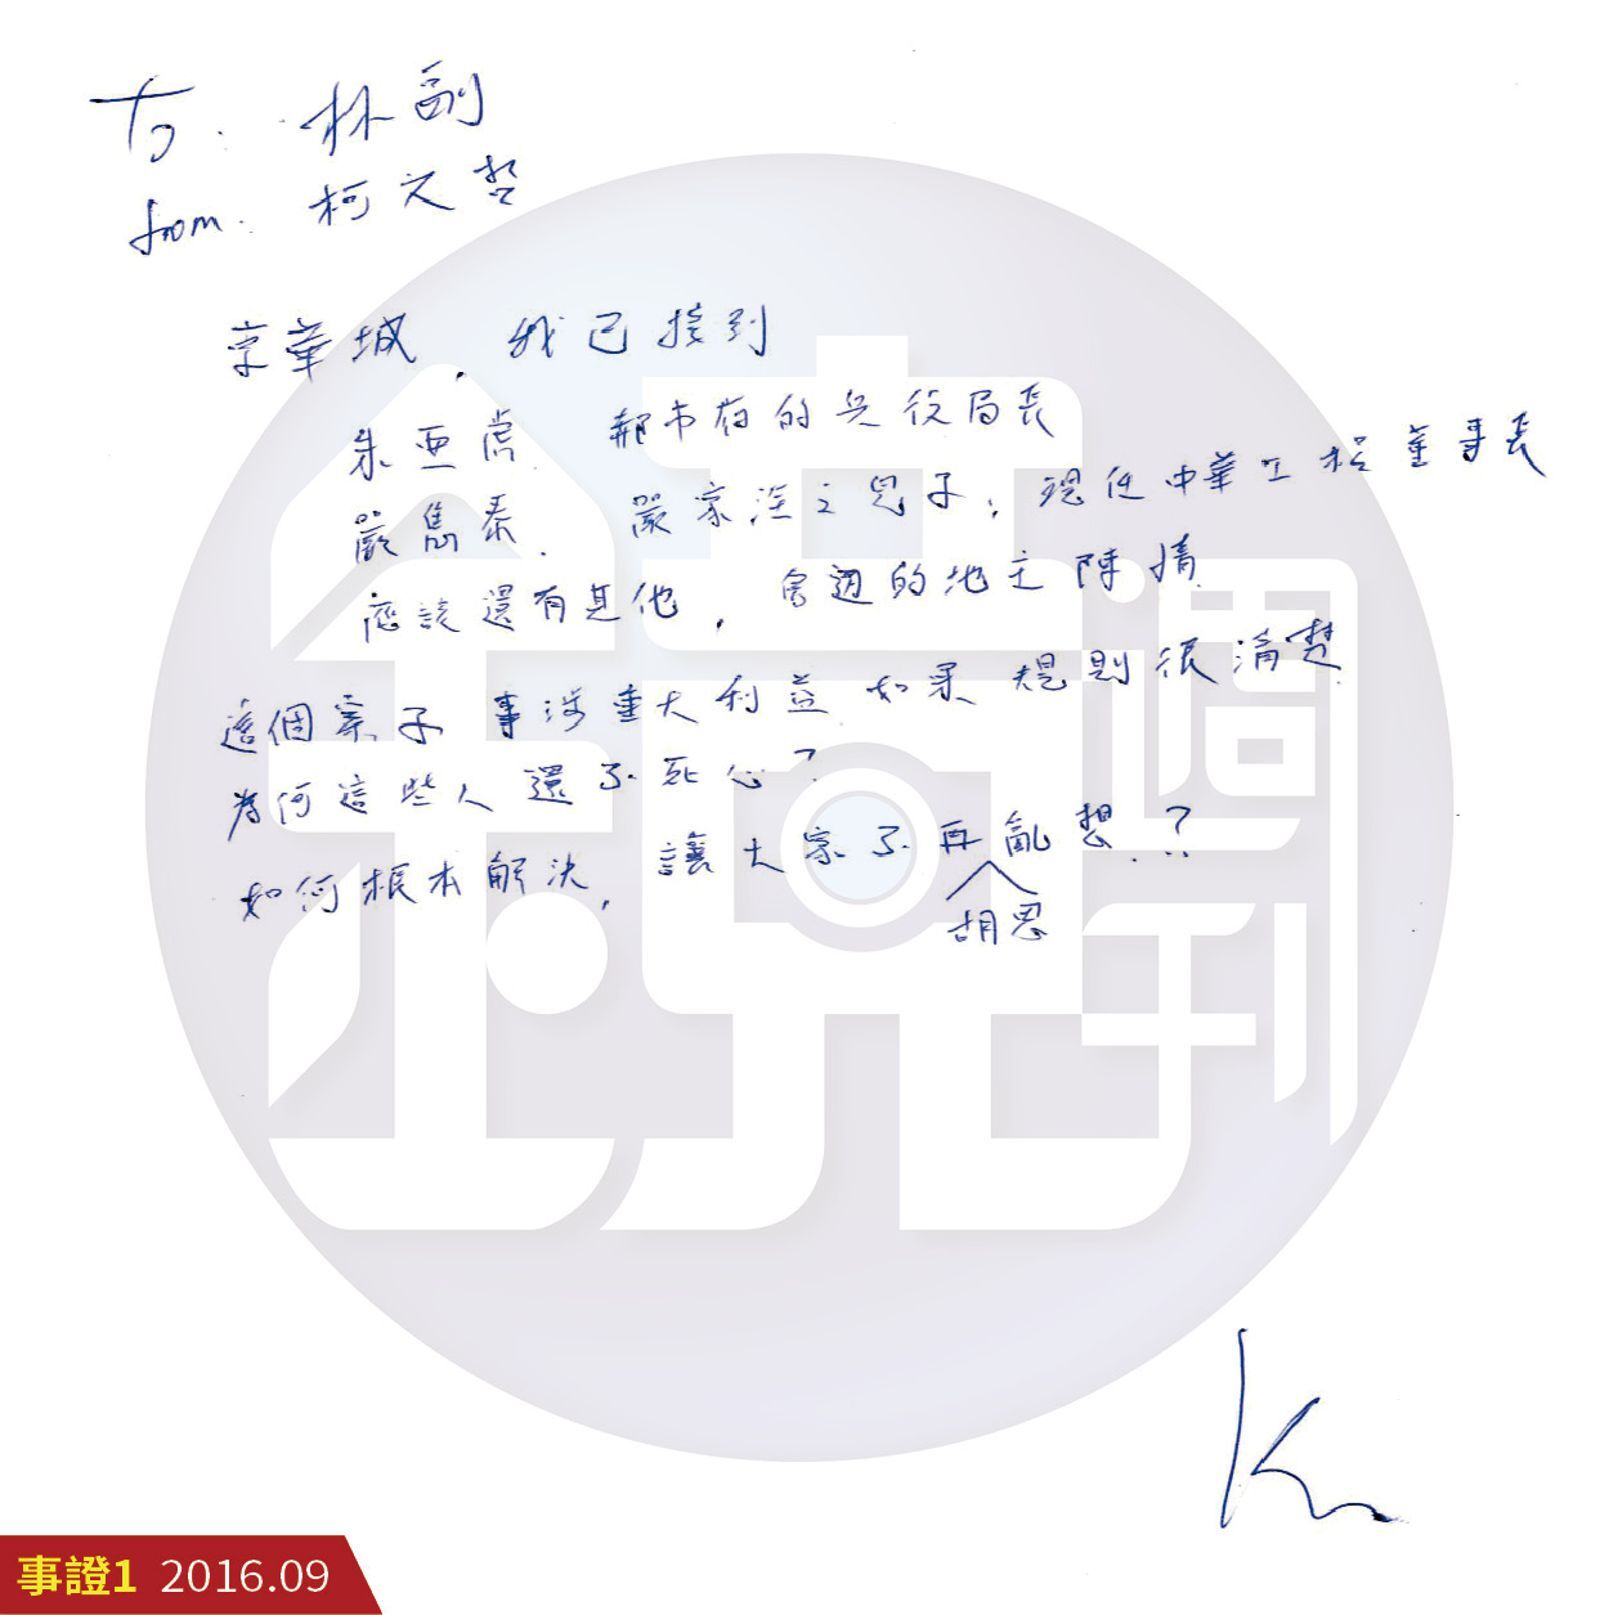 To: 林副
from: 柯文哲
京華城，我已接到
朱亞虎. 郝市府的兵役局長
嚴雋泰. 嚴家淦之兒子，現任中華工程董事長
應該還有其他，旁邊的地主陳情.
這個案子 事涉重大利益. 如果 規則很清楚.
為何這些人還不死心？
如何根本解決，讓大家不再亂想..？
胡思
K
鏡週刊
事證1 2016.09